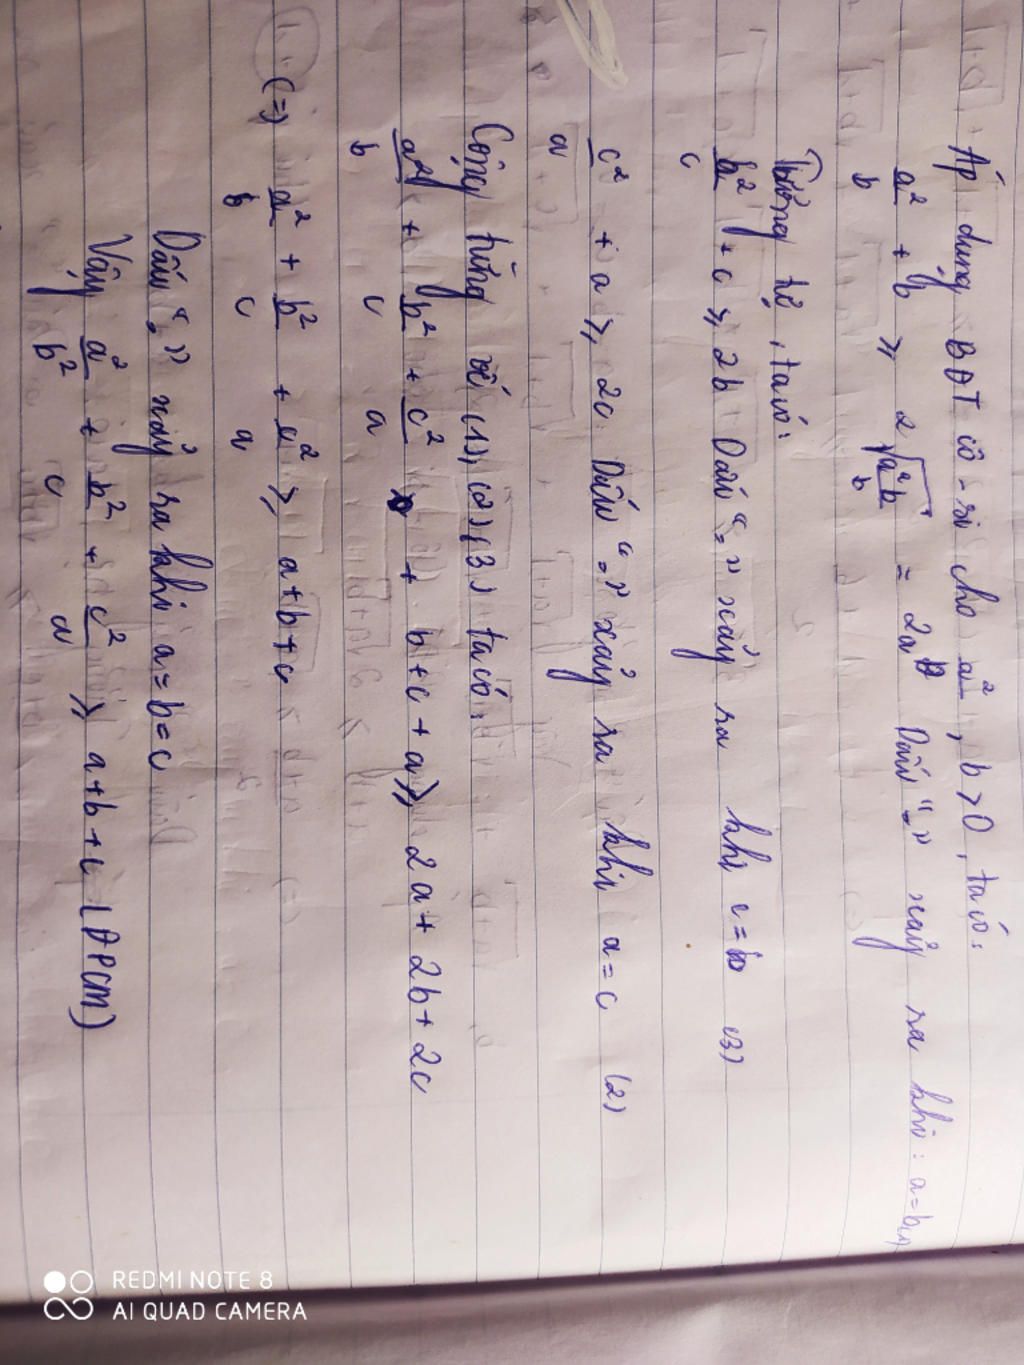 Áp dụng BĐT cô-si cho a²/b, b>0, ta có:
a²/b + b ≥ 2√(a²b/b) = 2a Dấu "=" xảy ra khi: a=b (1)
Tương tự, ta có:
b²/c + c ≥ 2b Dấu "=" xảy ra khi c=b (3)
c²/a + a ≥ 2c Dấu "=" xảy ra khi a=c (2)
Cộng từng vế (1), (2), (3) ta có:
a²/b + b²/c + c²/a + b+c+a ≥ 2a+2b+2c
(=) a²/b + b²/c + c²/a ≥ a+b+c
Dấu "=" xảy ra khi a=b=c
Vậy a²/b² + b²/c + c²/a ≥ a+b+c (ĐPCM)
REDMI NOTE 8
AI QUAD CAMERA